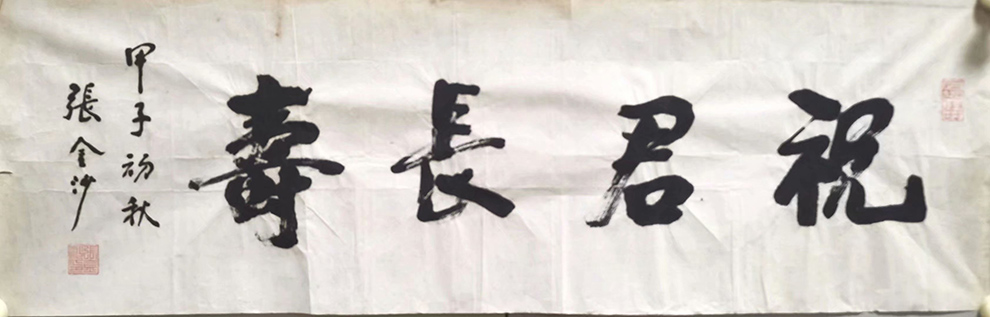 祝君長壽
甲子初秋
張金沙